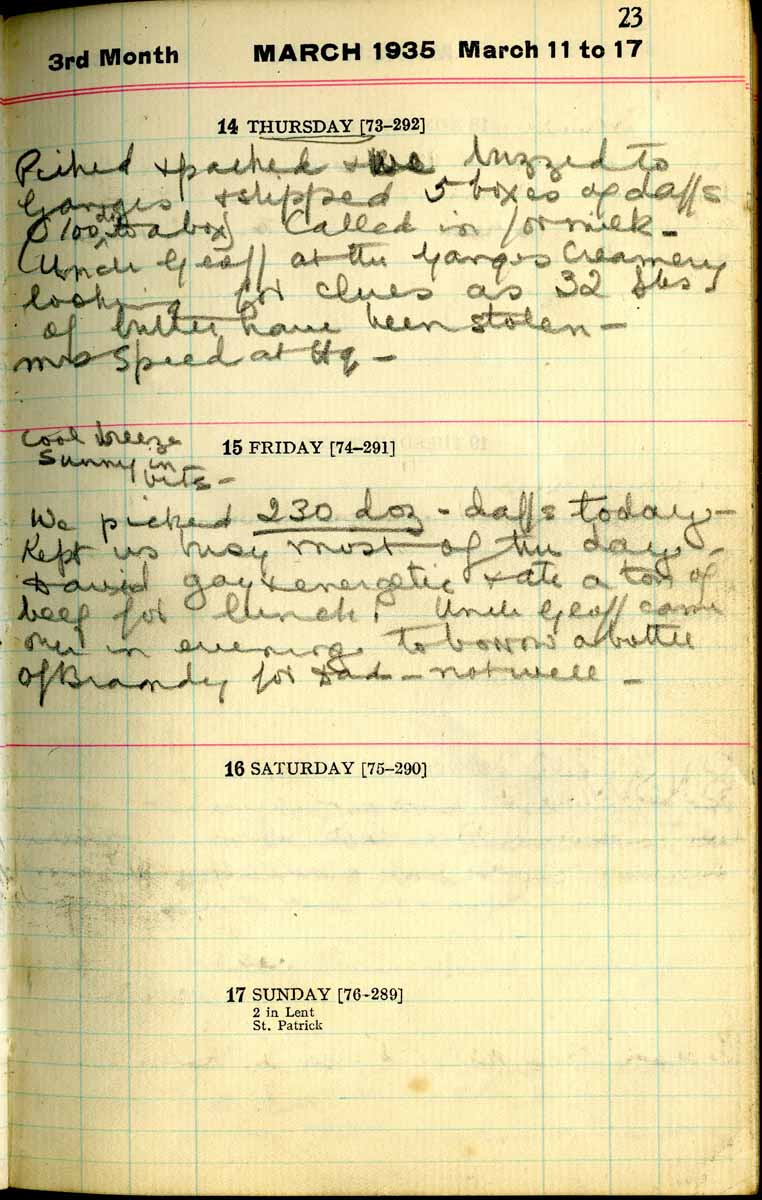 23
3rd Month MARCH 1935 March 11 to 17
14 THURSDAY [73–292]
Picked & packed & we buzzed to
Ganges & shipped 5 boxes of daffs
(100 to a box) Called in for milk –
Uncle Geoff at the Ganges Creamery
looking for clues as 32 lbs!
of butter have been stolen –
Mrs Speed at Hq –
cool breeze
Sunny in
bits –
15 FRIDAY [74–291]
We picked 230 doz – daffs today –
Kept us busy most of the day –
David gay & energetic & ate a ton of
beef for lunch! Uncle Geoff came
over in evening to borrow a bottle
of Brandy for Dad – not well –
16 SATURDAY [75–290]
17 SUNDAY [76-289]
2 in Lent
St. Patrick